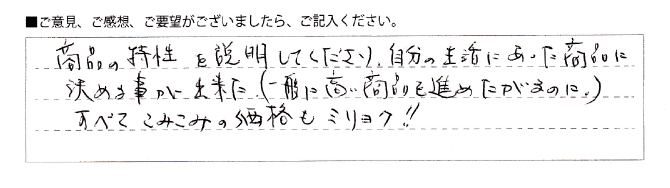 ■ご意見、ご感想、ご要望がございましたら、ご記入ください。
商品の特性を説明してくださり、自分の生活にあった商品に
決める事が出来た（一般に高い商品を進めたがるのに。）
すべてこみこみの価格もミリョク!!